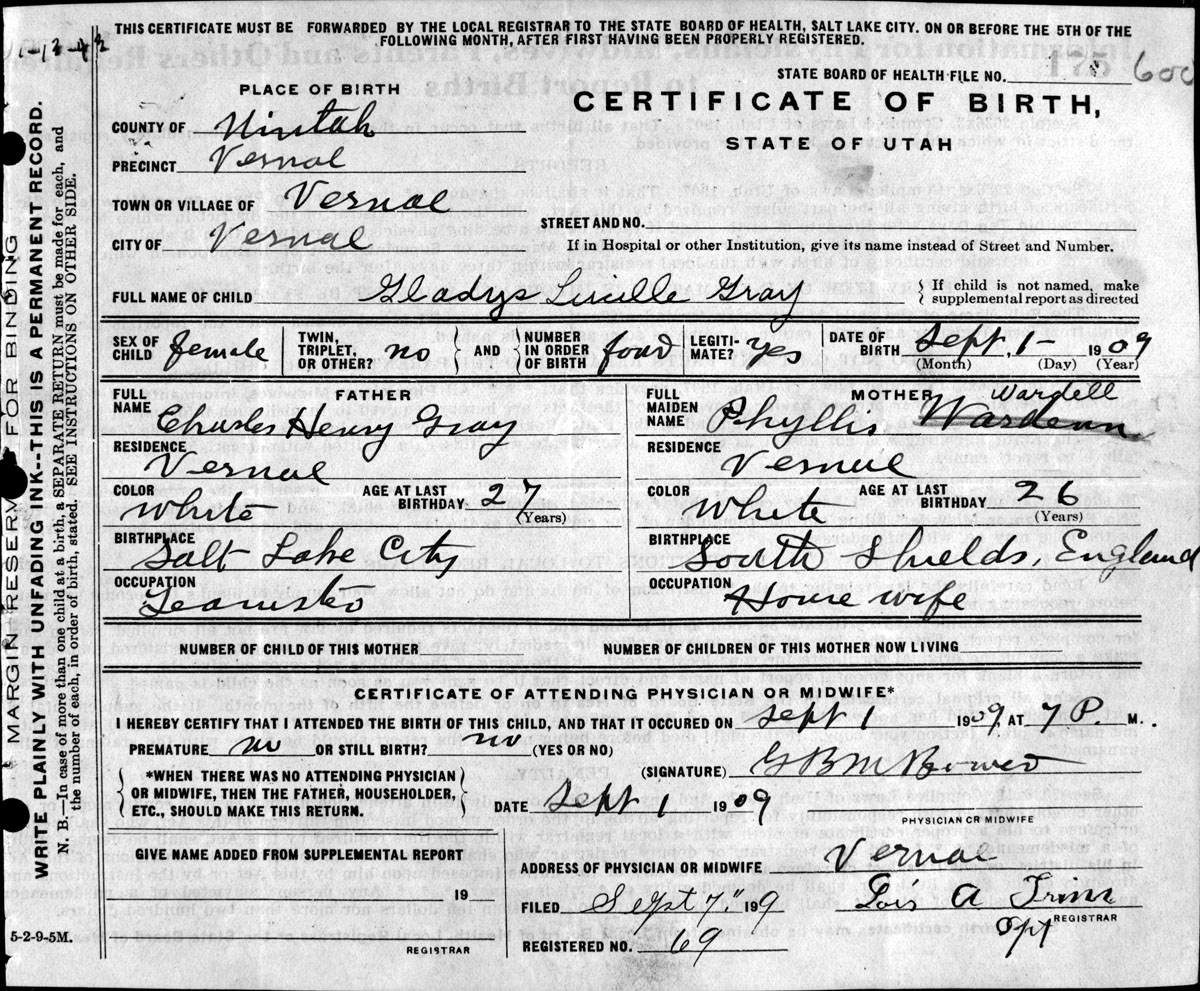 THIS CERTIFICATE MUST BE FORWARDED BY THE LOCAL REGISTRAR TO THE STATE BOARD OF HEALTH, SALT LAKE CITY. ON OR BEFORE THE 5TH OF THE
FOLLOWING MONTH, AFTER FIRST HAVING BEEN PROPERLY REGISTERED.
STATE BOARD OF HEALTH FILE NO. 600
PLACE OF BIRTH
CERTIFICATE OF BIRTH,
STATE OF UTAH
COUNTY OF Uintah
PRECINCT Vernal
TOWN OR VILLAGE OF Vernal
STREET AND NO.
CITY OF Vernal
If in Hospital or other Institution, give its name instead of Street and Number.
FULL NAME OF CHILD Gladys Lucille Gray { If child is not named, make
supplemental report as directed
SEX OF CHILD female TWIN, TRIPLET, OR OTHER? no } AND { NUMBER IN ORDER OF BIRTH LEGITI-MATE? yes DATE OF BIRTH Sept, 1- 1909
(Month) (Day) (Year)
FULL NAME FATHER Charles Henry Gray
FULL MAIDEN NAME MOTHER Phyllis Wardell
RESIDENCE Vernal
RESIDENCE Vernal
COLOR White AGE AT LAST BIRTHDAY 27 (Years)
COLOR White AGE AT LAST BIRTHDAY 26 (Years)
BIRTHPLACE Salt Lake City
BIRTHPLACE South Shields, England
OCCUPATION
OCCUPATION House wife
NUMBER OF CHILD OF THIS MOTHER NUMBER OF CHILDREN OF THIS MOTHER NOW LIVING
CERTIFICATE OF ATTENDING PHYSICIAN OR MIDWIFE*
I HEREBY CERTIFY THAT I ATTENDED THE BIRTH OF THIS CHILD, AND THAT IT OCCURED ON Sept 1 1909 AT 7 P. M.
PREMATURE no OR STILL BIRTH? no (YES OR NO)
(SIGNATURE)
{ *WHEN THERE WAS NO ATTENDING PHYSICIAN
OR MIDWIFE, THEN THE FATHER, HOUSEHOLDER,
ETC., SHOULD MAKE THIS RETURN. }
DATE Sept 1 1909
PHYSICIAN OR MIDWIFE
GIVE NAME ADDED FROM SUPPLEMENTAL REPORT
19
REGISTRAR
ADDRESS OF PHYSICIAN OR MIDWIFE Vernal
FILED Sept 7, 199 Lois A
REGISTRAR
REGISTERED NO. 69
5-2-9-5M.
MARGIN RESERVED FOR BINDING
WRITE PLAINLY WITH UNFADING INK--THIS IS A PERMANENT RECORD.
N. B.—In case of more than one child at a birth, a SEPARATE RETURN must be made for each, and
the number of each, in order of birth, stated. SEE INSTRUCTIONS ON OTHER SIDE.